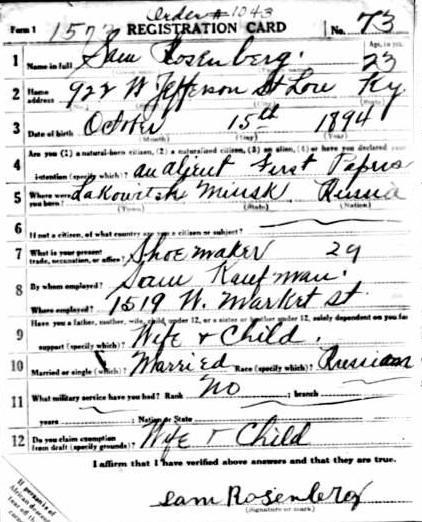 Order # 1043
Form 1 1573 REGISTRATION CARD No. 73
1 Name in full Sam Rosenberg. Age, in yrs. 23
2 Home address 922 W Jefferson St Lou Ky
3 Date of birth October 15th 1894
(Month) (Day) (Year)
4 Are you (1) a natural-born citizen, (2) a naturalized citizen, (3) an alien, (4) or have you declared your
intention (specify which)? an alient First Papers
5 Where were you born? Lakowitsh Minsk Russia
(Town) (State) (Nation)
6 If not a citizen, of what country are you a citizen or subject?
7 What is your present trade, occupation, or office? Shoemaker 29
8 By whom employed? Sam Kaufman.
Where employed? 1519 W. Market st.
9 Have you a father, mother, wife, child under 12, or a sister or brother under 12, solely dependent on you for
support (specify which)? Wife + Child.
10 Married or single (which)? Married Race (specify which)? Russian
11 What military service have you had? Rank No ; branch
years ; Nation or State
12 Do you claim exemption from draft (specify grounds)? Wife + Child
I affirm that I have verified above answers and that they are true.
Sam Rosenberg
(Signature or mark)
If person is of
African descent